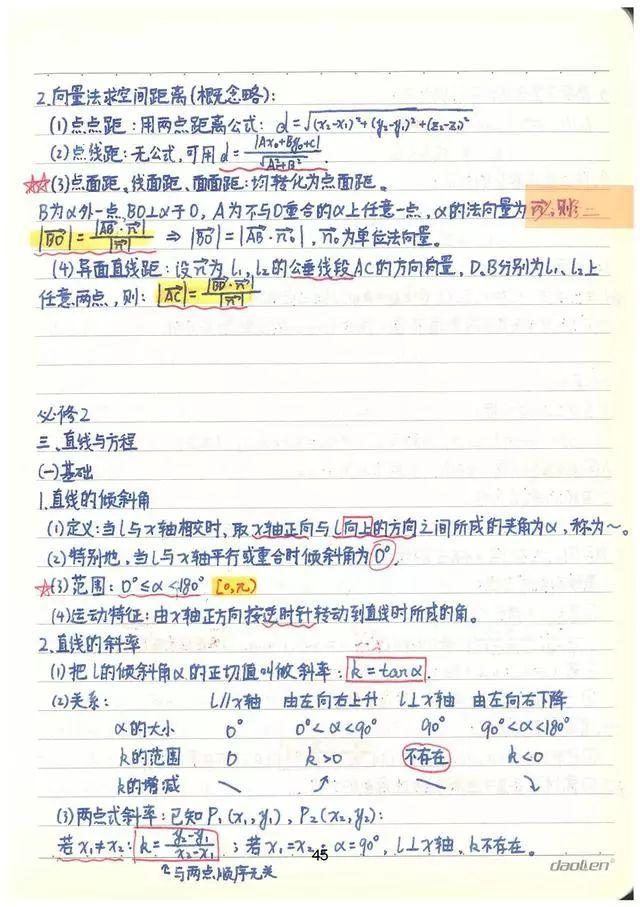 2.向量法求空间距离(概念略):
(1)点点距:用两点距离公式: d=√((x₂-x₁)²+(y₂-y₁)²+(z₂-z₁)²)
(2)点线距:无公式,可用 d=|Ax₀+By₀+C|/√(A²+B²)
☆☆(3)点面距、线面距、面面距:均转化为点面距。
B为α外一点,BO⊥α于O,A为不与O重合的α上任意一点,α的法向量为n⃗,则:
|BO⃗|=|AB⃗·n⃗|/|n⃗| ⇒ |BO⃗|=|AB⃗·n⃗₀|,n⃗₀为单位法向量。
(4)异面直线距:设n⃗为l₁,l₂的公垂线段AC的方向向量,D、B分别为l₁、l₂上
任意两点,则: |AC⃗|=|BD⃗·n⃗|/|n⃗|
必修2
三、直线与方程
(一)基础
1.直线的倾斜角
(1)定义:当l与x轴相交时,取x轴正向与l向上的方向之间所成的夹角为α,称为~。
(2)特别地,当l与x轴平行或重合时倾斜角为0°。
☆(3)范围:0°≤α<180° [0,π)
(4)运动特征:由x轴正方向按逆时针转动到直线时所成的角。
2.直线的斜率
(1)把l的倾斜角α的正切值叫做斜率:k=tanα.
(2)关系: l∥x轴 由左向右上升 l⊥x轴 由左向右下降
α的大小 0° 0°<α<90° 90° 90°<α<180°
k的范围 0 k>0 不存在 k<0
k的增减 \ ↗ \ ↘
(3)两点式斜率:已知P₁(x₁,y₁),P₂(x₂,y₂):
若x₁≠x₂:k=(y₂-y₁)/(x₂-x₁);若x₁=x₂:α=90°,l⊥x轴,k不存在。
与两点顺序无关
45
daolien